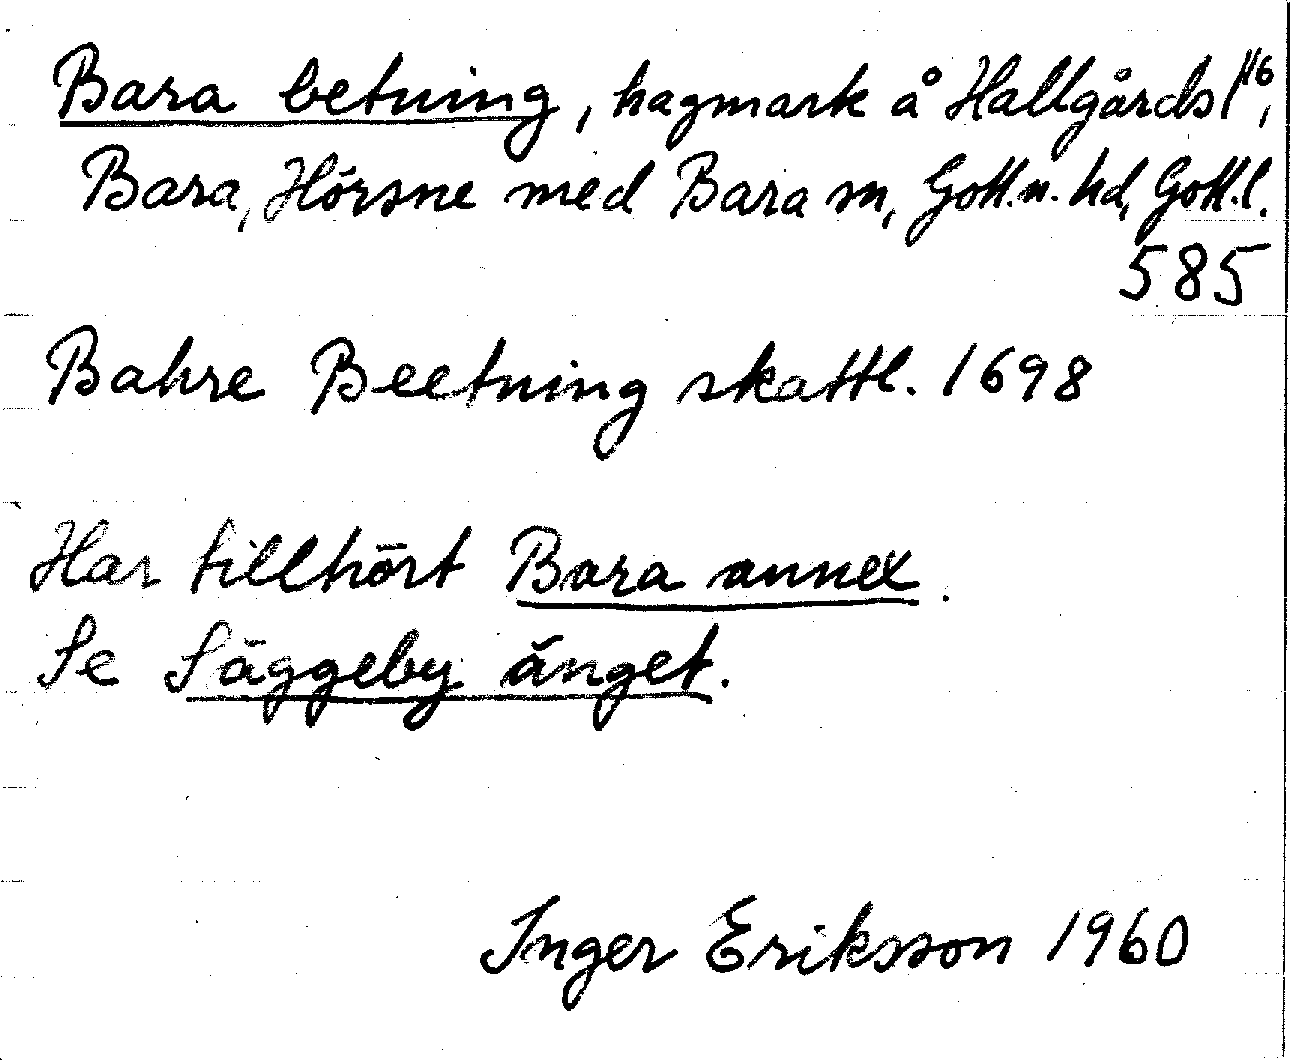 Bara betning, hagmark å Hallgårds 1/16,
Bara, Hörsne med Bara sn, Gotl.n. hd, Gotl.l.
585
Bahre Beetning skattl. 1698
Har tillhört Bara annex.
Se Säggeby änget.
Inger Eriksson 1960